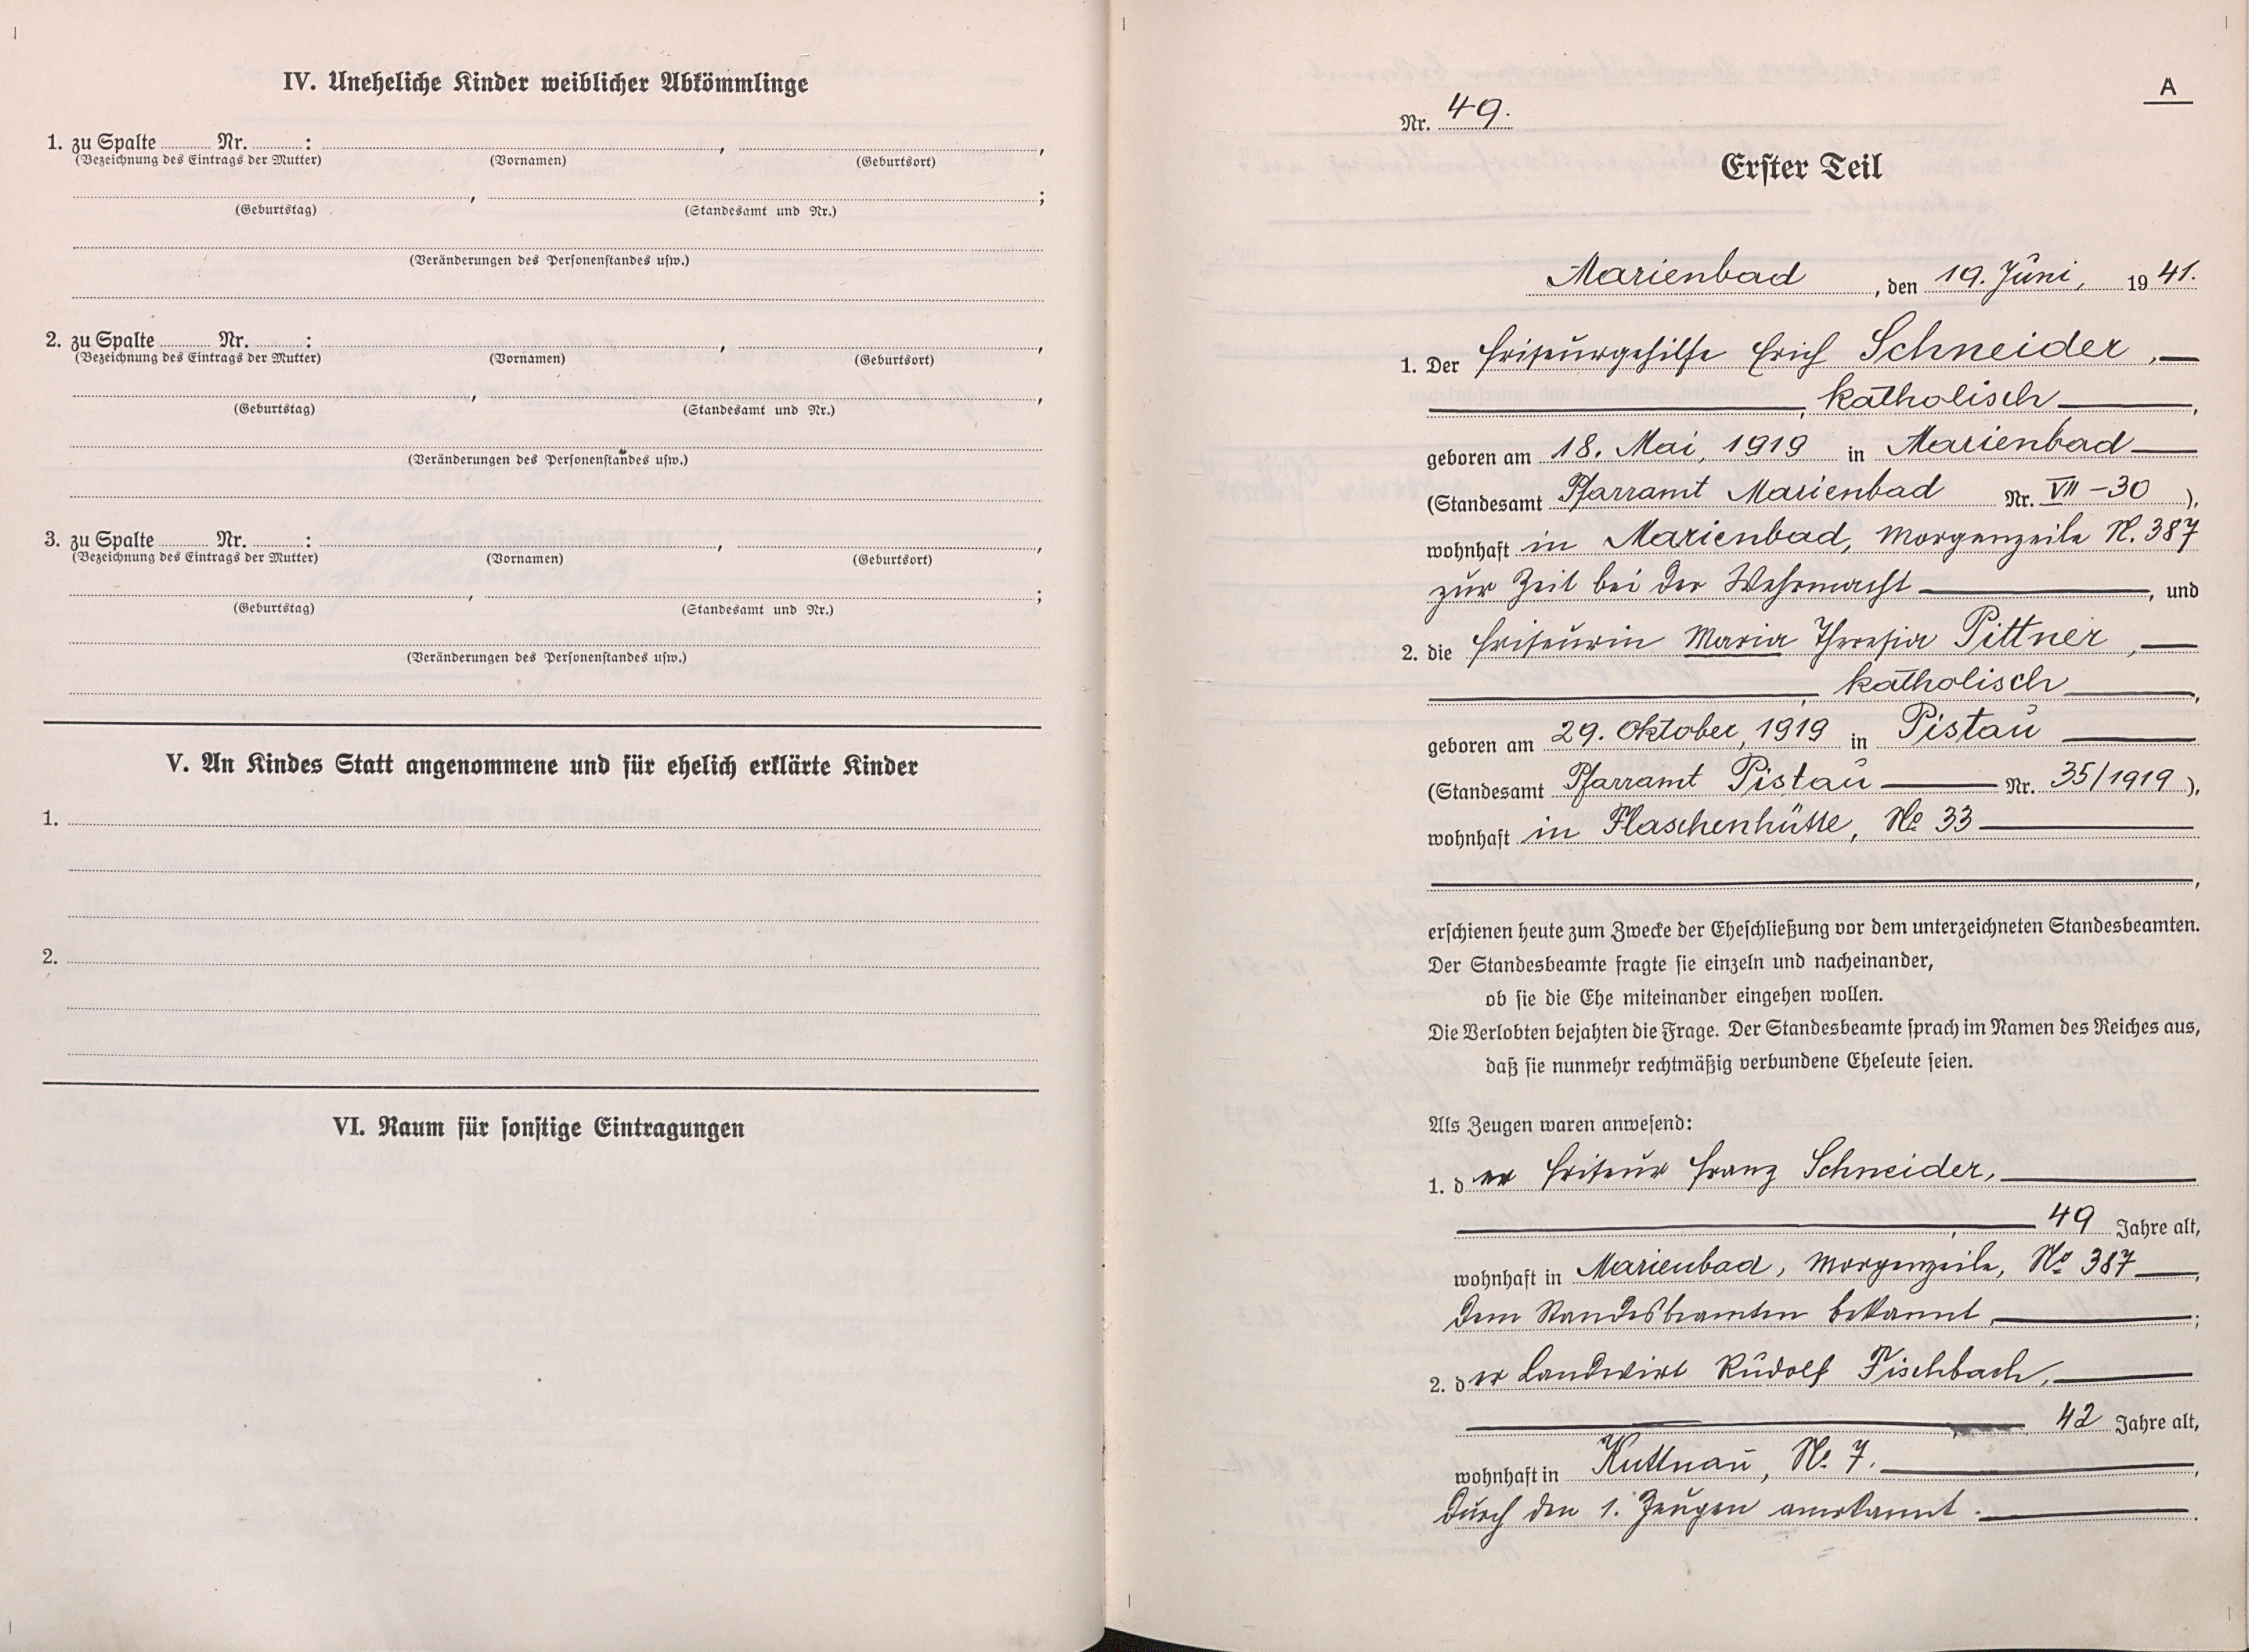 IV. Uneheliche Kinder weiblicher Abkömmlinge
1. zu Spalte ........ Nr. ........ : ........, ........,
(Bezeichnung des Eintrags der Mutter) (Vornamen) (Geburtsort)
........, ........;
(Geburtstag) (Standesamt und Nr.)
(Veränderungen des Personenstandes usw.)
2. zu Spalte ........ Nr. ........ : ........, ........,
(Bezeichnung des Eintrags der Mutter) (Vornamen) (Geburtsort)
........, ........,
(Geburtstag) (Standesamt und Nr.)
(Veränderungen des Personenstandes usw.)
3. zu Spalte ........ Nr. ........ : ........, ........,
(Bezeichnung des Eintrags der Mutter) (Vornamen) (Geburtsort)
........, ........;
(Geburtstag) (Standesamt und Nr.)
(Veränderungen des Personenstandes usw.)
V. An Kindes Statt angenommene und für ehelich erklärte Kinder
1.
2.
VI. Raum für sonstige Eintragungen
A
Nr. 49.
Erster Teil
Marienbad, den 19. Juni, 1941.
1. Der Friseurgehilfe Erich Schneider,
, katholisch,
geboren am 18. Mai, 1919 in Marienbad
(Standesamt Pfarramt Marienbad Nr. VII-30),
wohnhaft in Marienbad, Morgenzeile N. 387
zur Zeit bei der Wehrmacht, und
2. die Friseurin Maria Theresia Pittner,
, katholisch,
geboren am 29. Oktober, 1919 in Pistau
(Standesamt Pfarramt Pistau Nr. 35/1919),
wohnhaft in Flaschenhütte, No 33
,
erschienen heute zum Zwecke der Eheschließung vor dem unterzeichneten Standesbeamten.
Der Standesbeamte fragte sie einzeln und nacheinander,
ob sie die Ehe miteinander eingehen wollen.
Die Verlobten bejahten die Frage. Der Standesbeamte sprach im Namen des Reiches aus,
daß sie nunmehr rechtmäßig verbundene Eheleute seien.
Als Zeugen waren anwesend:
1. der Friseur Franz Schneider,
, 49 Jahre alt,
wohnhaft in Marienbad, Morgenzeile, No 387,
dem Standesbeamten bekannt,;
2. der Landwirt Rudolf Fischbach,
, 42 Jahre alt,
wohnhaft in Kuttnau, N. 7.,
durch den 1. Zeugen anerkannt.